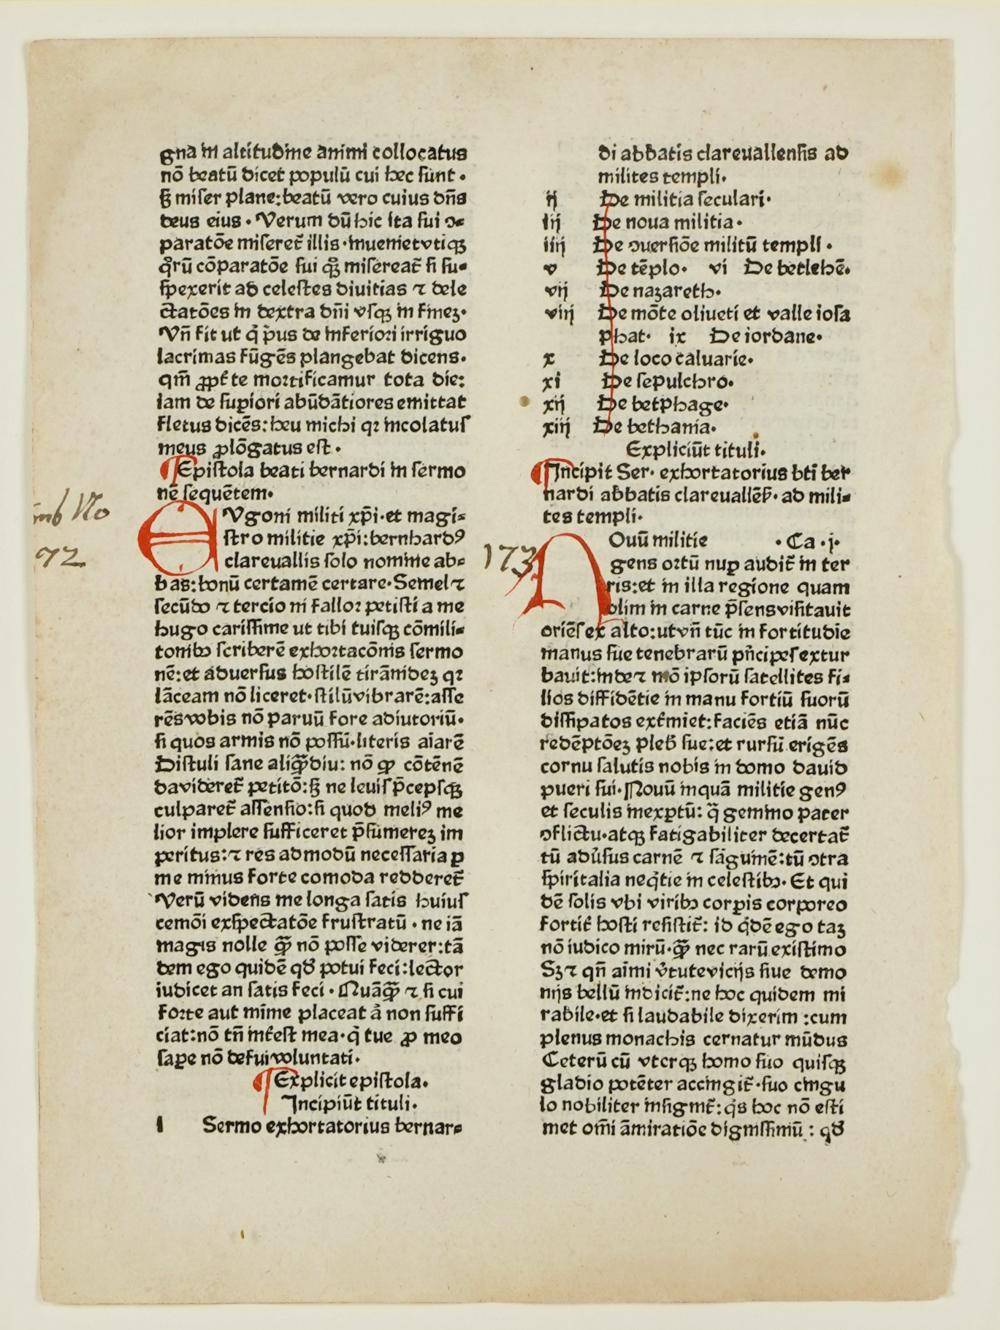 gna in altitudine animi collocatus
nō beatū dicet populū cui hec sunt ·
ꝫ miser plane: beatū vero cuius dn̄s
deus eius · Verum dū hic ita sui ɔ⸗
paratōe miseret̄ illis · inueniet vtiqꝫ
qꝛ̄ū cōparatōe sui qꝫ misereat̄ si su⸗
spexerit ad celestes diuitias ⁊ dele
ctatōes in dextra dn̄i vsqꝫ in finez ·
Vn̄ fit ut q̇ pͥus de inferiori irriguo
lacrimas fūgēs plangebat dicens ·
qm̄ ꝓpt̄ te mortificamur tota die:
iam de suꝑiori abūdātiores emittat
fletus dicēs: heu michi qꝛ incolatus
meus ꝓlōgatus est ·
¶Epistola beati bernardi in sermo
nē sequētem ·
E Vgoni militi xp̄i · et magi⸗
stro militie xp̄i: bernhardꝰ
clareuallis solo nomine ab⸗
bas: bonū certamē certare · Semel ⁊
secūdo ⁊ tercio ni fallor petisti a me
hugo carissime ut tibi tuisqꝫ cōmili⸗
tonibꝫ scriberē exhortacōnis sermo
nē: et aduersus hostilē tirānidez qꝛ
lāceam nō liceret · stilū vibrarē: asse
rēs vobis nō paruū fore adiutoriū ·
si quos armis nō possū · literis aīarē
Distuli sane aliqͣdiu: nō ꝙ cōtēnē
da videret̄ petitō: ꝫ ne leuis p̄cepsqꝫ
culparet̄ assensio: si quod meliꝰ me
lior implere sufficeret p̄sumerez im
peritus: ⁊ res admodū necessaria ꝑ
me minus forte comoda redderet̄
Verū videns me longa satis huius
cemōi exspectatōe frustratū · ne iā
magis nolle qͣꝫ nō posse viderer: tā
dem ego quidē qd̄ potui feci: lector
iudicet an satis feci · Nūāqͣꝫ ⁊ si cui
forte aut mīme placeat aͭ non suffi
ciat: nō tn̄ int̄est mea · q̇ tue ꝓ meo
sape nō defui voluntati ·
¶Explicit epistola ·
Incipiūt tituli ·
I Sermo exhortatorius bernar⸗
di abbatis clareuallensis ad
milites templi ·
ij De militia seculari ·
iij De noua militia ·
iiij De ɔuersiōe militū templi ·
v De tēplo · vi De betlehē ·
vij De nazareth ·
viij De mōte oliueti et valle iosa
phat · ix De iordane ·
x De loco caluarie ·
xi De sepulchro ·
xij De betphage ·
xiij De bethania ·
Expliciūt tituli ·
¶Incipit Ser · exhortatorius bt̄i ber
nardi abbatis clareuallēs̄ · ad mili⸗
tes templi ·
173
N Ouū militie · Ca · j ·
gens ortū nuꝑ audit̄ in ter
ris: et in illa regione quam
olim in carne p̄sens visitauit
oriēs ex alto: ut vn̄ tūc in fortitudie
manus sue tenebrarū pn̄cipes extur
bauit: inde ⁊ mō ipsorū satellites fi⸗
lios diffidētie in manu fortiū suorū
dissipatos ext̄miet: faciēs etiā nūc
redēptōez pleb̄ sue: et rursū erigēs
cornu salutis nobis in domo dauid
pueri sui · Nouū inquā militie genꝰ
et seculis inexptū: q̄ gemino pater
ɔflictu · atqꝫ fatigabiliter decertat̄
tū adu̇sus carnē ⁊ sāguinē: tū ɔtra
spiritalia neq̇tie in celestibꝫ · Et qui
dē solis vbi viribꝫ corꝑis corporeo
fortit̄ hosti resistit̄: id q̇dē ego taꝫ
nō iudico mirū · qͣꝫ nec rarū existimo
Sꝫ ⁊ qn̄ aimi v̇tute vicijs siue demo
nijs bellū indicit̄: ne hoc quidem mi
rabile · et si laudabile dixerim: cum
plenus monachis cernatur mūdus
Ceterū cū vterqꝫ homo suo quisqꝫ
gladio potēter accingit̄ · suo cingu
lo nobiliter insignit̄: q̇s hoc nō esti
met om̄i āmiratiōe dignissimū: qd̄
No
72